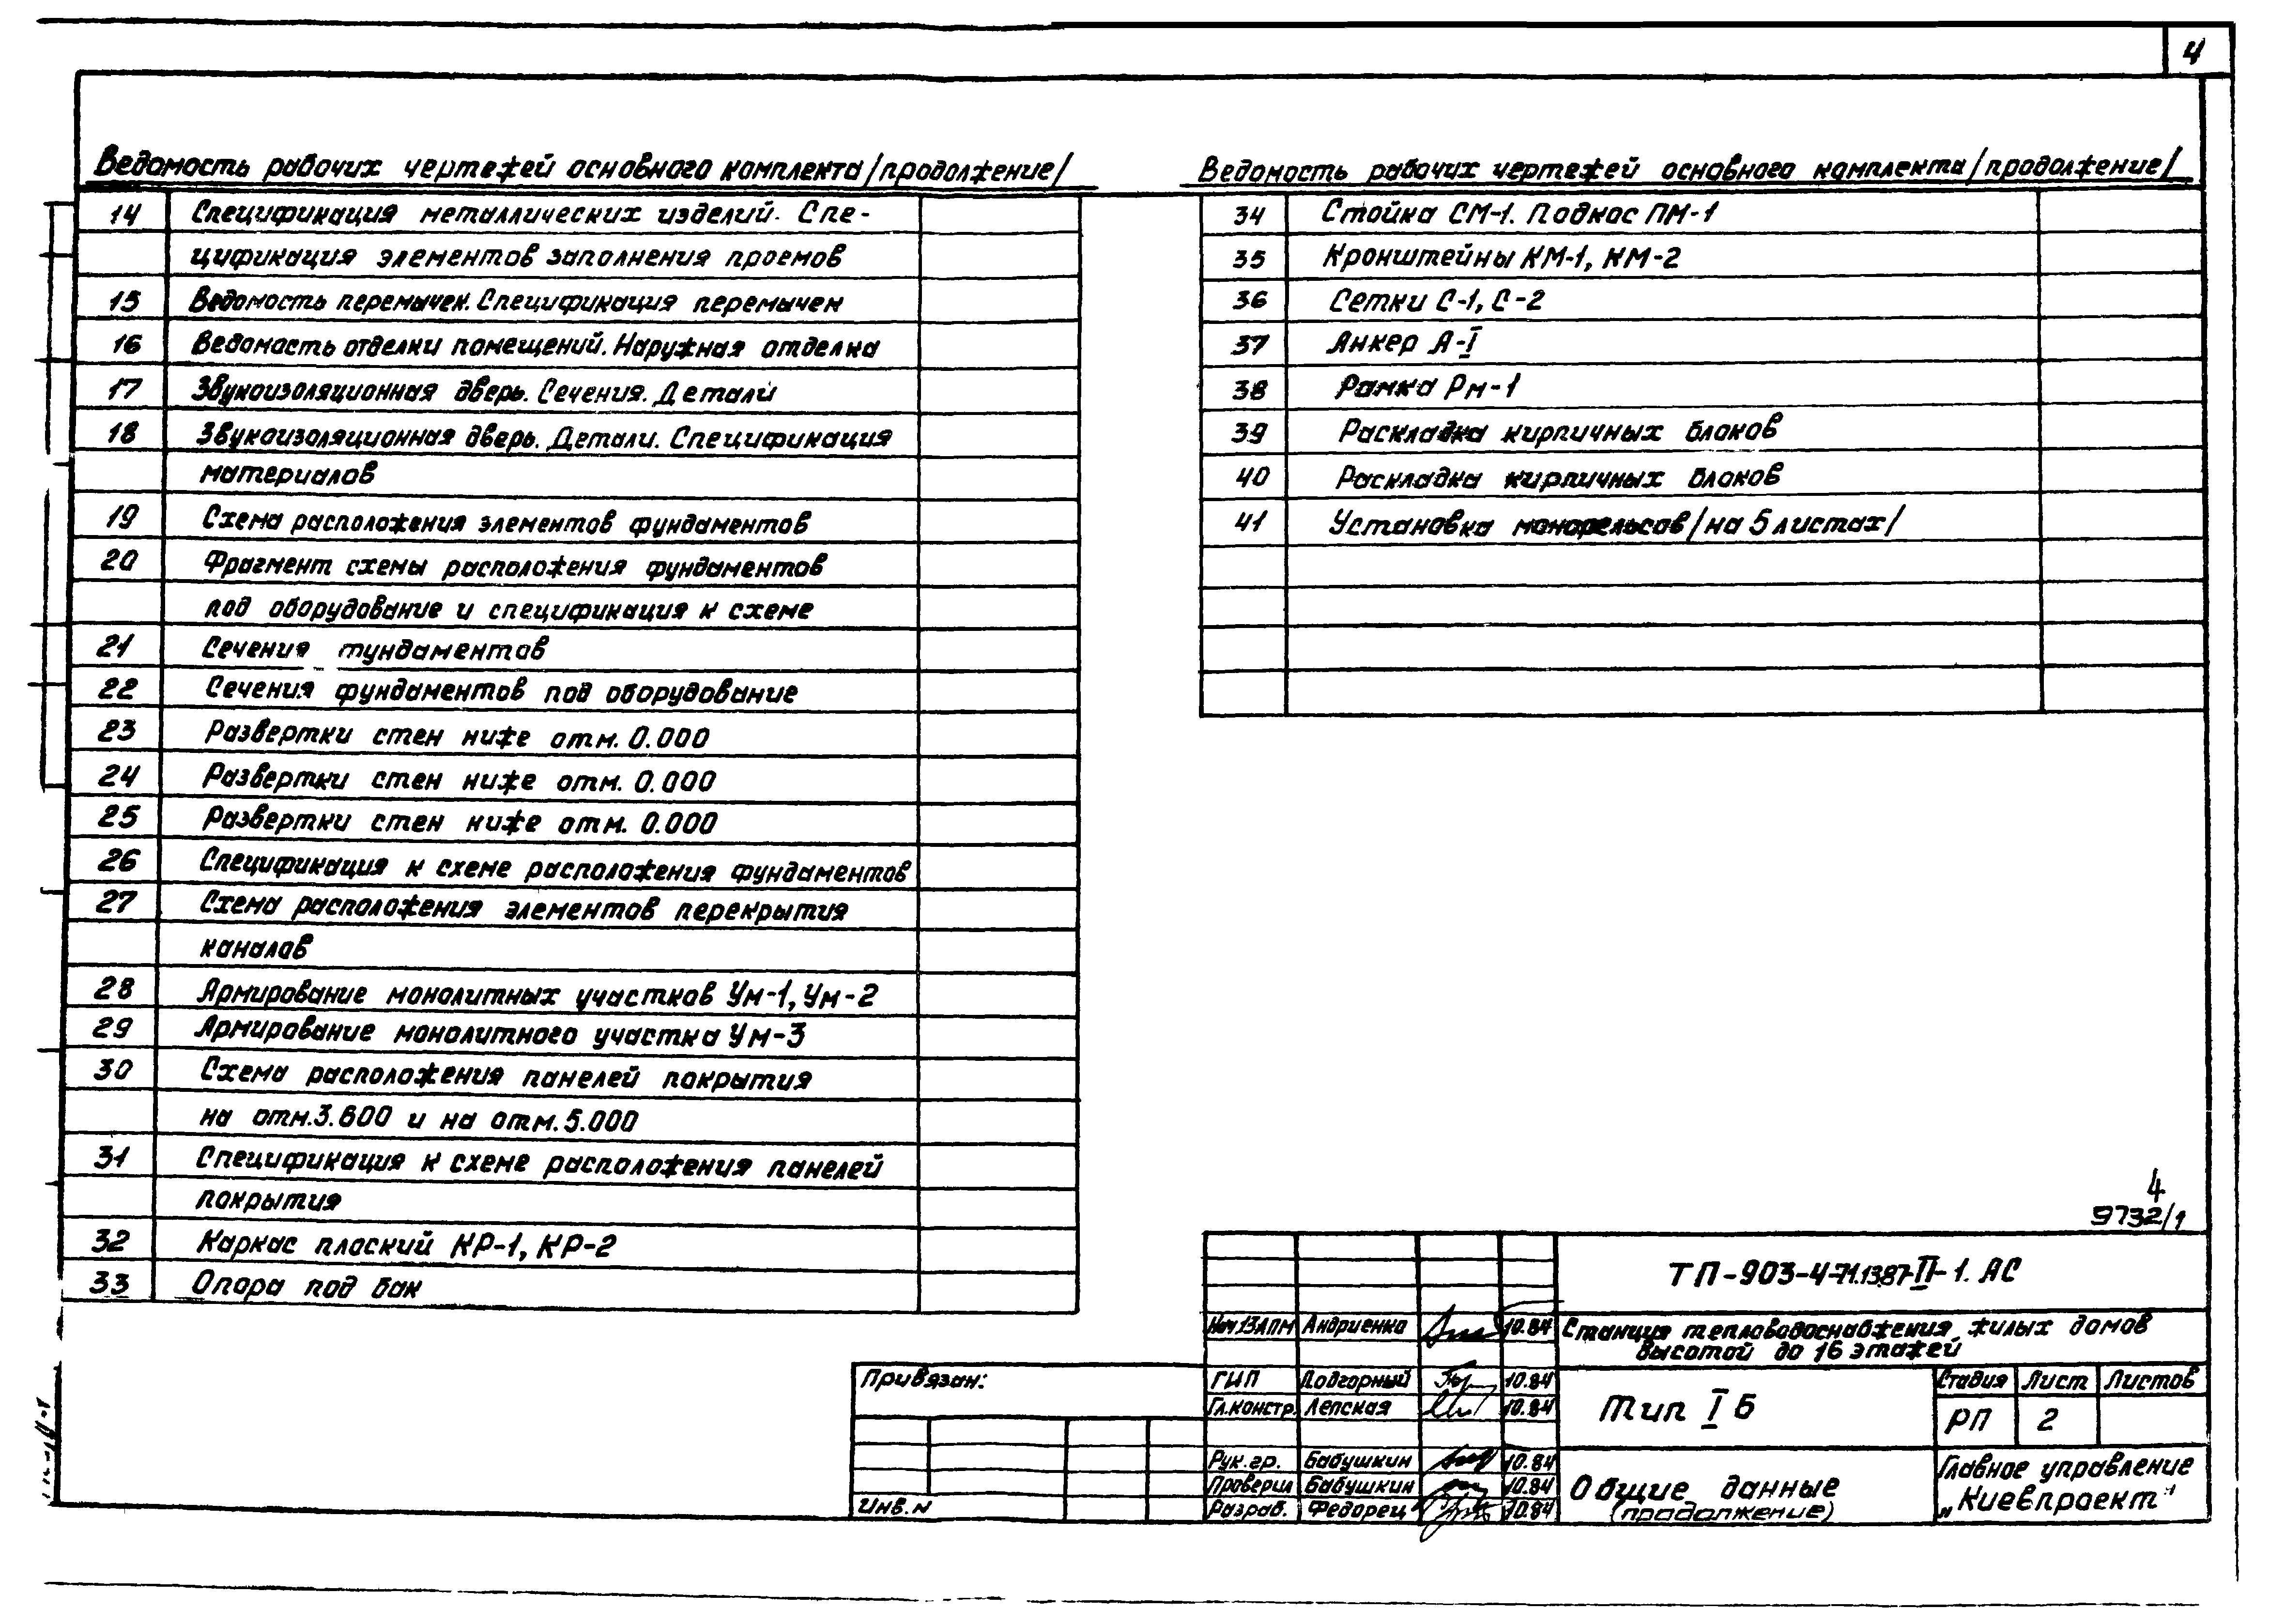 4
Ведомость рабочих чертежей основного комплекта /продолжение/
14 Спецификация металлических изделий. Спе-
цификация элементов заполнения проемов
15 Ведомость перемычек. Спецификация перемычек
16 Ведомость отделки помещений. Наружная отделка
17 Звукоизоляционная дверь. Сечения. Детали
18 Звукоизоляционная дверь. Детали. Спецификация
материалов
19 Схема расположения элементов фундаментов
20 Фрагмент схемы расположения фундаментов
под оборудование и спецификация к схеме
21 Сечения фундаментов
22 Сечения фундаментов под оборудование
23 Развертки стен ниже отм. 0.000
24 Развертки стен ниже отм. 0.000
25 Развертки стен ниже отм. 0.000
26 Спецификация к схеме расположения фундаментов
27 Схема расположения элементов перекрытия
каналов
28 Армирование монолитных участков Ум-1, Ум-2
29 Армирование монолитного участка Ум-3
30 Схема расположения панелей покрытия
на отм. 3.600 и на отм. 5.000
31 Спецификация к схеме расположения панелей
покрытия
32 Каркас плоский КР-1, КР-2
33 Опора под бак
Ведомость рабочих чертежей основного комплекта /продолжение/
34 Стойка СМ-1. Подкос ПМ-1
35 Кронштейны КМ-1, КМ-2
36 Сетки С-1, С-2
37 Анкер А-I
38 Рамка Рм-1
39 Раскладка кирпичных блоков
40 Раскладка кирпичных блоков
41 Установка монорельсов /на 5 листах/
4
9732/1
ТП-903-4-71.13.87-II-1. АС
Нач 13 АПМ Андриенко 10.84
Станция тепловодоснабжения жилых домов
высотой до 16 этажей
Привязан:
ГИП Подгорный 10.84
Гл.констр. Лепская 10.84
Тип I Б
Стадия Лист Листов
РП 2
Рук.гр. Бабушкин 10.84
Проверил Бабушкин 10.84
Разраб. Федорец 10.84
Общие данные
(продолжение)
Главное управление
„Киевпроект"
Инв.N